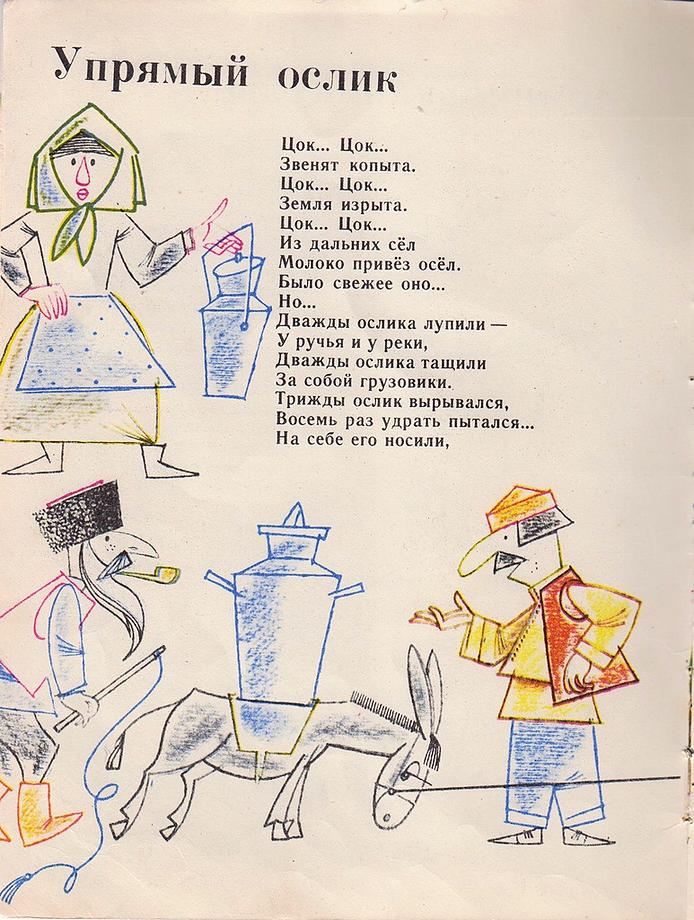 Упрямый ослик
Цок... Цок...
Звенят копыта.
Цок... Цок...
Земля изрыта.
Цок... Цок...
Из дальних сёл
Молоко привёз осёл.
Было свежее оно...
Но...
Дважды ослика лупили —
У ручья и у реки,
Дважды ослика тащили
За собой грузовики.
Трижды ослик вырывался,
Восемь раз удрать пытался...
На себе его носили,